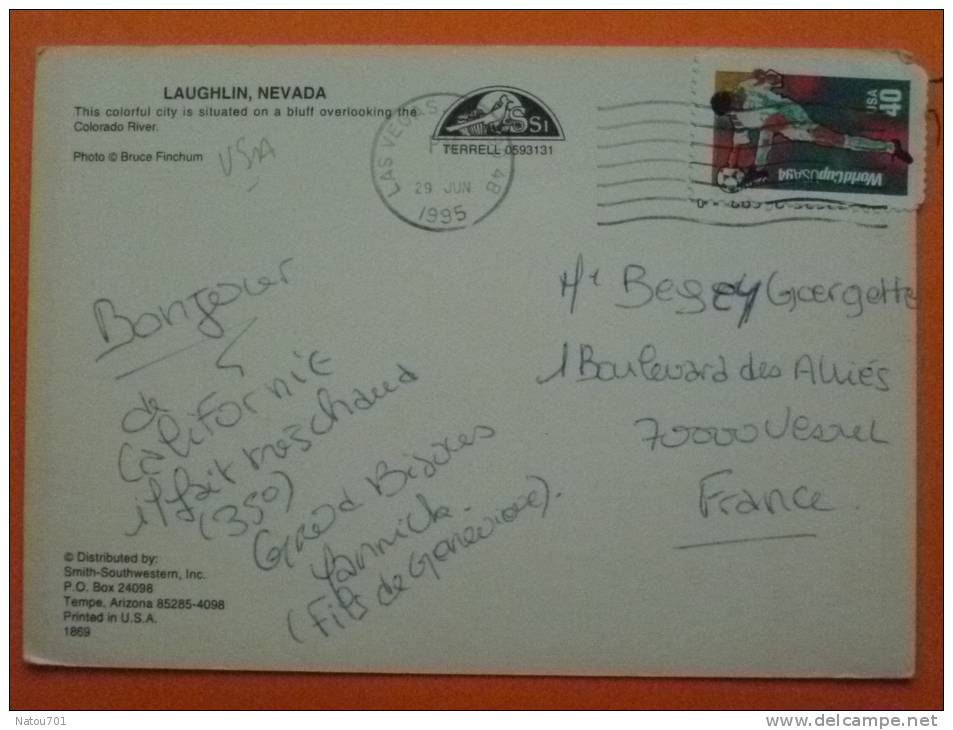 LAUGHLIN, NEVADA
This colorful city is situated on a bluff overlooking the
Colorado River.
Photo © Bruce Finchum
USA
SSI
TERRELL 0593131
LAS VEGAS
29 JUN
1995
USA 40
WorldCupUSA94
Bonjour
de
Californie
il fait très chaud
(350)
Grand Bisoux
Yannick.
(Fils de Geneviève).
Me Begey Goergette
1 Boulevard des Alliés
70000 Vesoul
France
© Distributed by:
Smith-Southwestern, Inc.
P.O. Box 24098
Tempe, Arizona 85285-4098
Printed in U.S.A.
1869
Natou701
www.delcampe.net